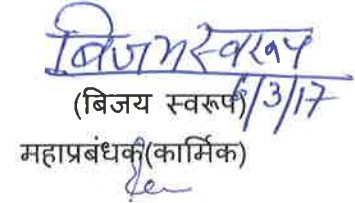 बिजय स्वरूप
(बिजय स्वरूप) /3/17
महाप्रबंधक(कार्मिक)